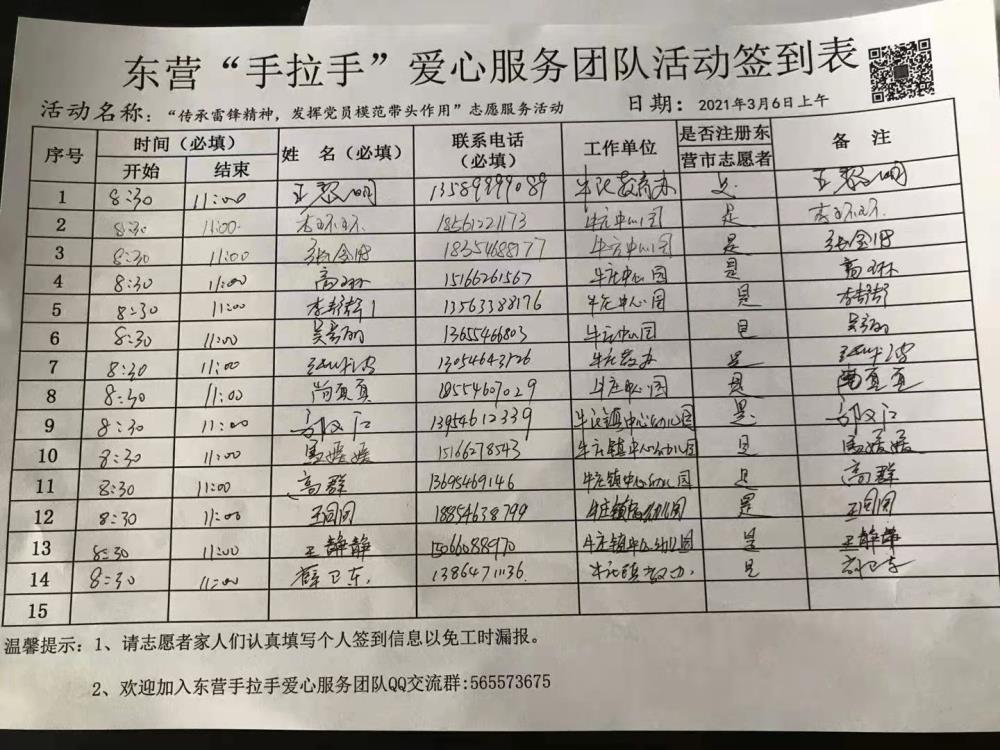 东营“手拉手”爱心服务团队活动签到表
活动名称：“传承雷锋精神，发挥党员模范带头作用”志愿服务活动 日期：2021年3月6日上午
序号 时间（必填） 姓 名（必填） 联系电话（必填） 工作单位 是否注册东营市志愿者 备 注
开始 结束
1 8:30 11:00 王黎明 13589999089 是 王黎明
2 8:30 11:00 18561221173 牛庄中心园 是
3 8:30 11:00 张金 18354688177 牛庄中心园 是 张金
4 8:30 11:00 高环 15166261567 牛庄中心园 是 高环
5 8:30 11:00 李静静 13563388176 牛庄中心园 是 李静静
6 8:30 11:00 吴 13655466803 牛庄中心园 是 吴
7 8:30 11:00 13054643726 是
8 8:30 11:00 尚夏夏 18554607029 牛庄中心园 是 尚夏夏
9 8:30 11:00 13954612339 牛庄镇中心幼儿园 是
10 8:30 11:00 媛媛 15166278543 牛庄镇中心幼儿园 是 媛媛
11 8:30 11:00 高群 13695469146 牛庄镇中心幼儿园 是 高群
12 8:30 11:00 王同同 18854638799 牛庄镇幼儿园 是 王同同
13 8:30 11:00 王静静 15066088970 牛庄镇中心幼儿园 是 王静静
14 8:30 11:00 薛卫东 13864711136 牛庄镇教办 是 薛卫东
15
温馨提示：1、请志愿者家人们认真填写个人签到信息以免工时漏报。
2、欢迎加入东营手拉手爱心服务团队QQ交流群:565573675